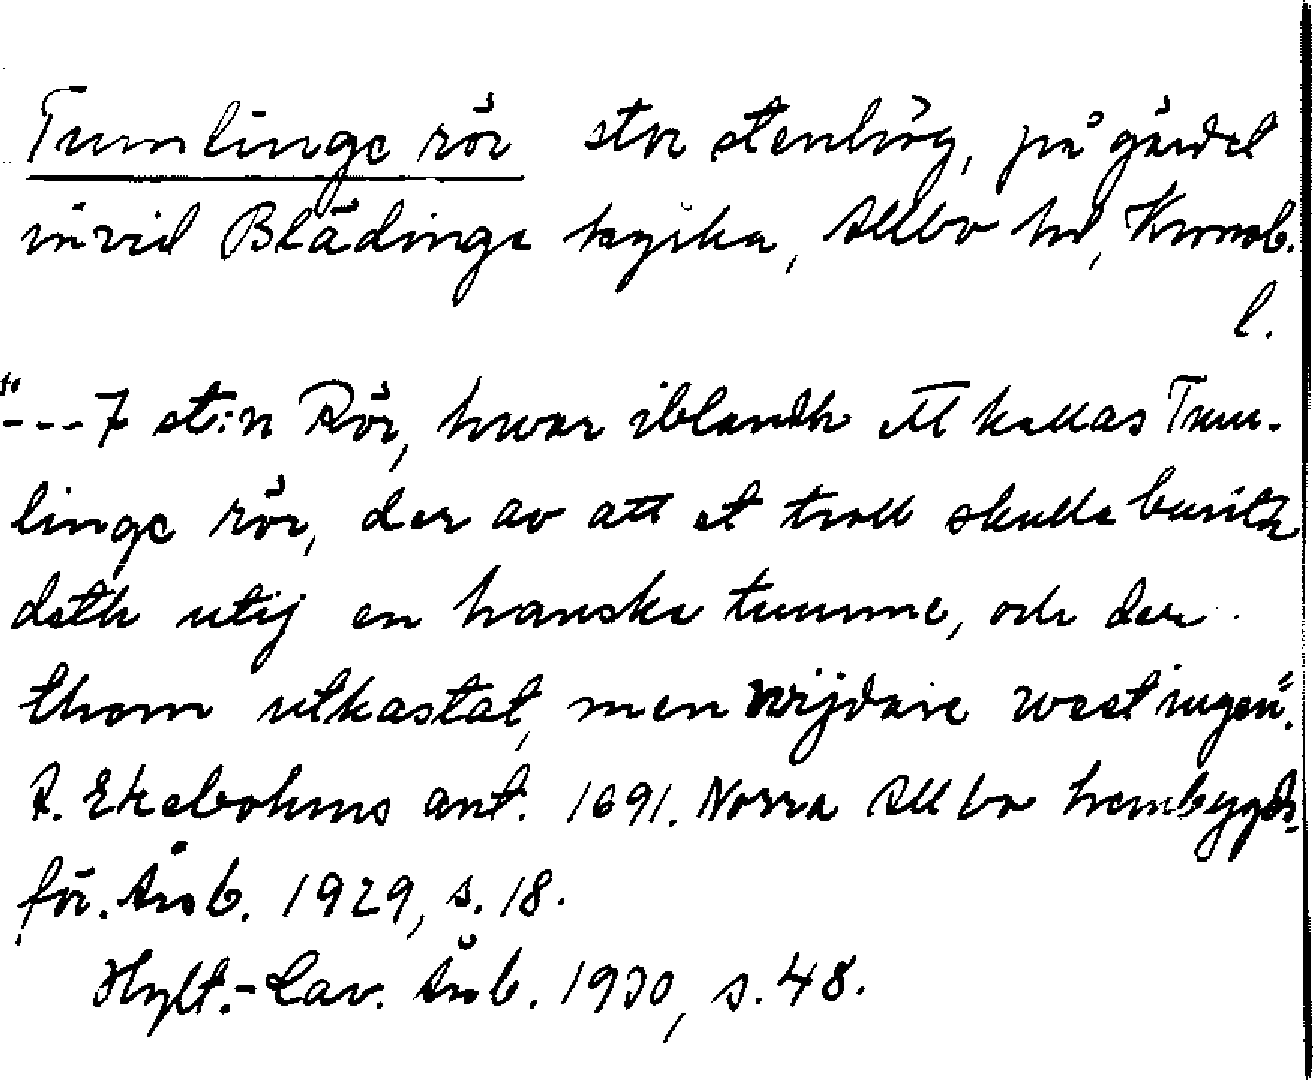 Tumlinge rör stor stenhög, på gärdet
invid Blädinge kyrka, Allbo hd, Kronob.
l.
"---7 st:n Rör, hwar iblandh ett kallas Tum-
linge rör, der av att et troll skulle burith
deth utij en hanske tumme, och der
thom utkastat, men wijdare weet ingen".
P. Ekebohms ant. 1691. Norra Allbo hembygds-
för. Årsb. 1929, s. 18.
Hylt.-Cav. Årsb. 1930, s. 48.